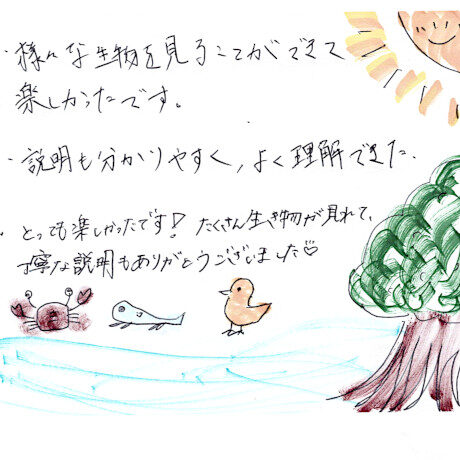 ・様々な生物を見ることができて
楽しかったです。
・説明も分かりやすく、よく理解できた.
・とっても楽しかったです! たくさん生き物が見れて、
丁寧な説明もありがとうございました♡